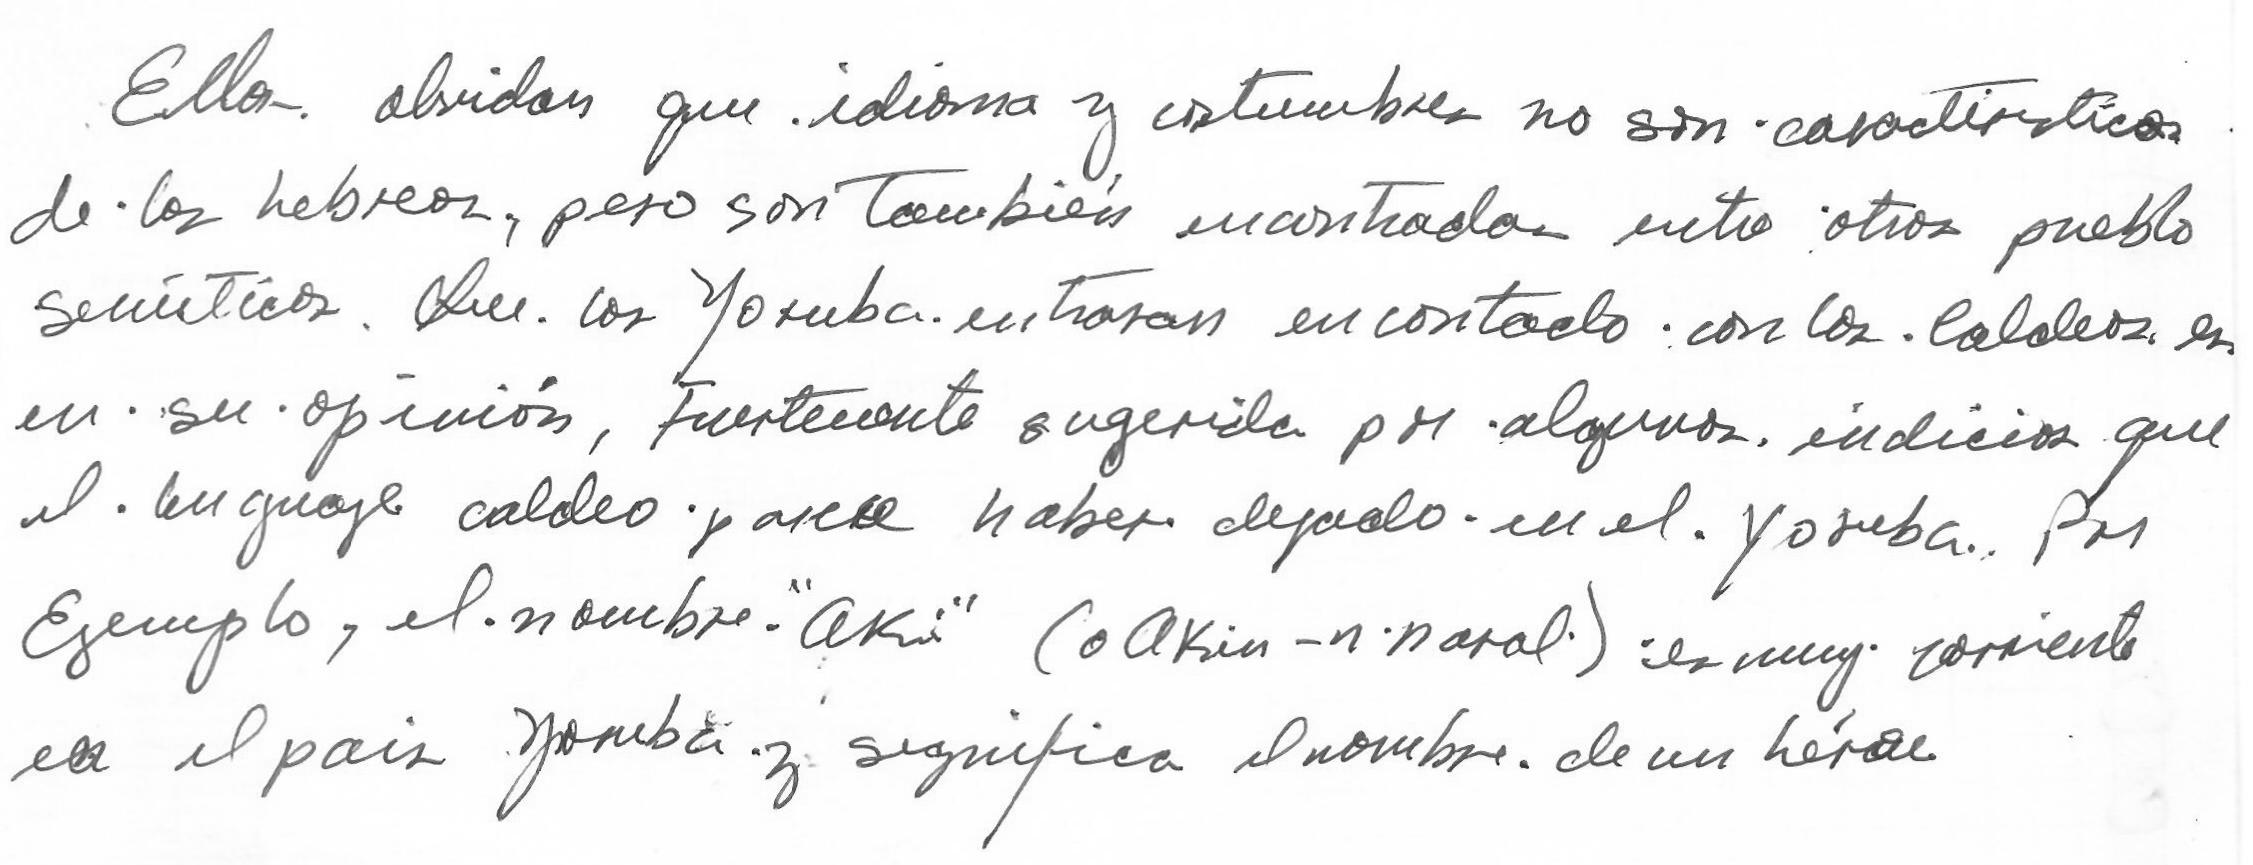 Ellos olvidan que idioma y costumbres no son caracteristicas
de los hebreos, pero son también encontradas entre otros pueblo
semíticos. Que los Yoruba entraran en contacto con los Caldeos es
en su opinión, Fuertemente sugerida por algunos indicios que
el lenguaje caldeo parece haber dejado en el Yoruba. Por
Ejemplo, el nombre "Aki" (o Akin - n nasal) es muy corriente
en el pais Yoruba y significa el nombre de un héroe